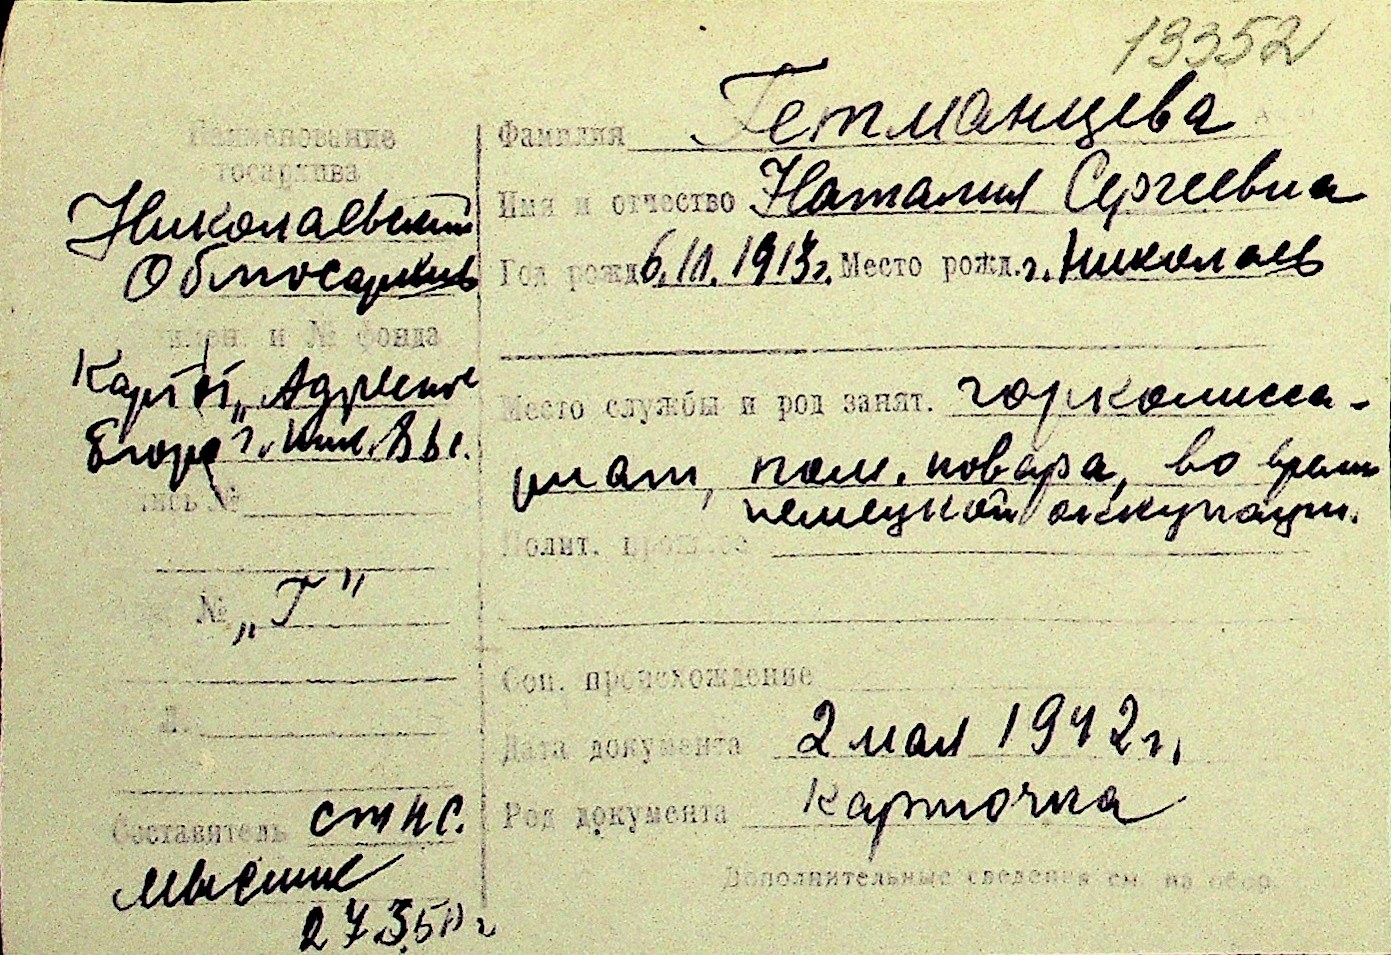 13352
Наименование
госархива
Николаевский
Облгосархив
и № фонда
Адресное
№
№ „Г"
Л.
Составитель ст н с.
27.3.50 г
Фамилия Гетманцева
Имя и отчество Наталия Сергеевна
Год рожд 1913г. Место рожд. г. Николаев
Место службы и род занят. горкомисса-
риат, пом. повара, во время
немецкой оккупации.
Полит.
Соц. происхождение
Дата документа 2 мая 1942 г.
Род документа Карточка
Дополнительные сведения см. на обор.